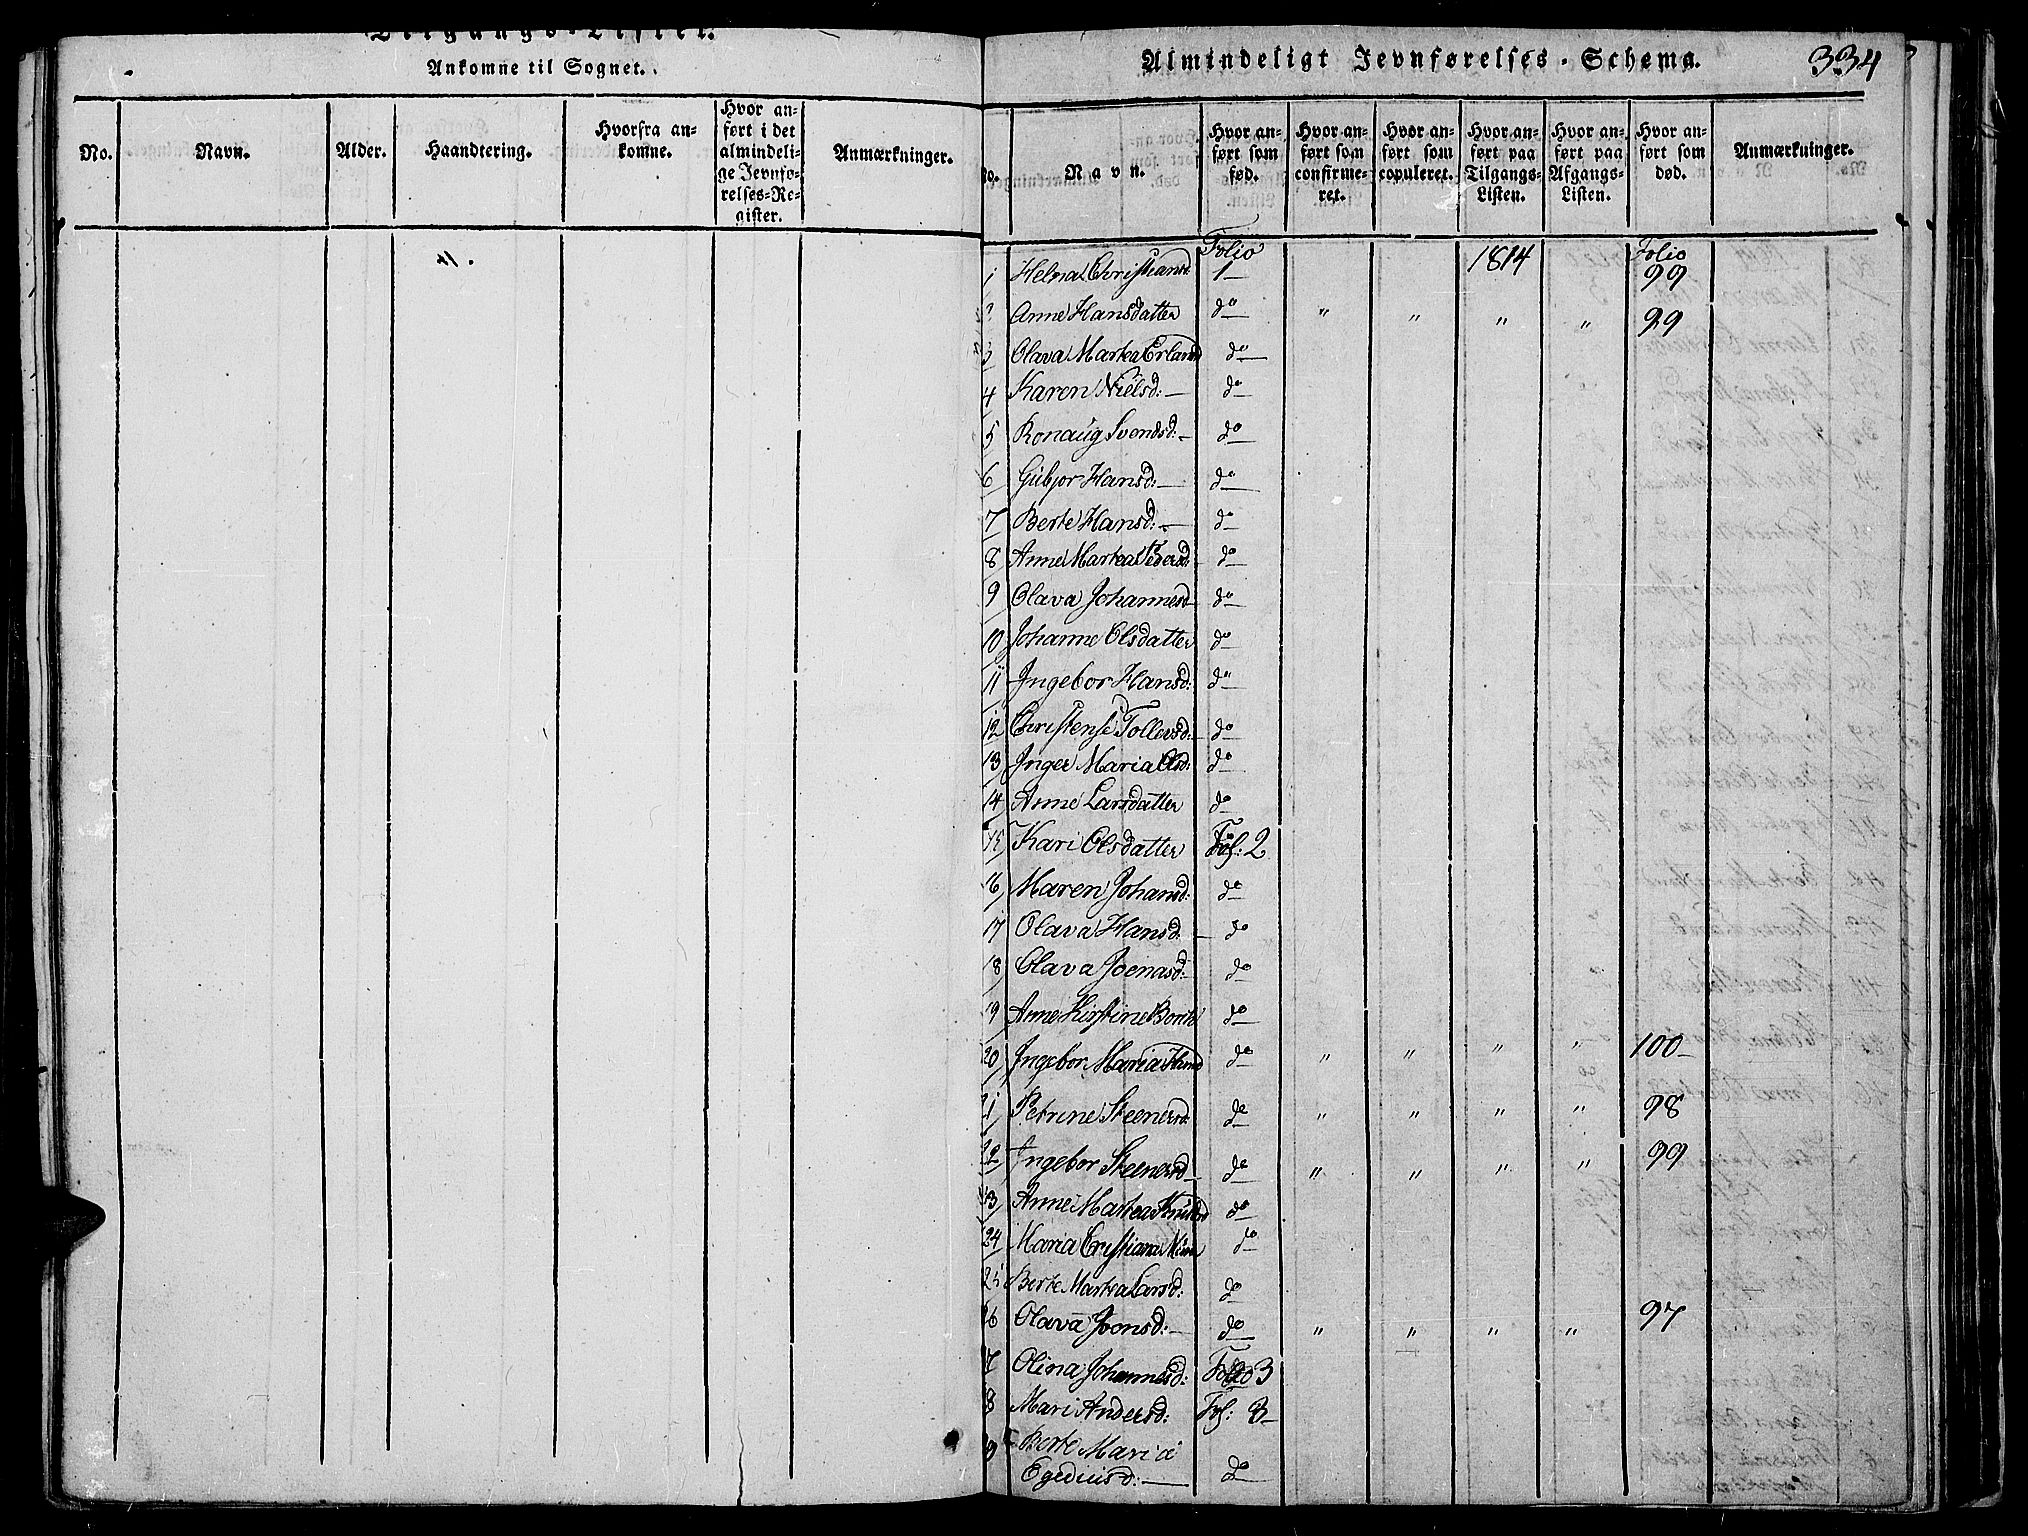 Tilgangs-Lister.
Ankomne til Sognet.
No.
Navn.
Alder.
Haandtering.
Hvorfra an-
komne.
Hvor an-
ført i det
almindeli-
ge Jevnfø-
relses-Re-
gister.
Anmærkninger.
Almindeligt Jevnførelses-Schema.
334
No.
Navn.
Hvor an-
ført som
fød.
Hvor an-
ført som
confirme-
ret.
Hvor an-
ført som
copuleret.
Hvor an-
ført paa
Tilgangs-
Listen.
Hvor an-
ført paa
Afgangs-
Listen.
Hvor an-
ført som
død.
Anmærkninger.
Folio 1814 Folio
1 Helna Christiansd 1 99
2 Anne Hansdatter do " " " " 99
3 Olava Martea Erlansd do
4 Karen Nielsd: do
5 Ronaug Svendsd: do
6 Gubjor Hansd: do
7 Berte Hansd: do
8 Anne Martea Pedersd: do
9 Olava Johannesd do
10 Johanne Olsdatter do
11 Ingebor Hansd: do
12 Christense Tollevsd: do
13 Inger Maria Olsd: do
14 Anne Larsdatter do
15 Kari Olsdatter Fol: 2
16 Maren Johansd: do
17 Olava Hansd: do
18 Olava Joenasd: do
19 Anne Kirstine do
20 Ingebor Maria do " " " " 100
21 Petrine Steenersd: do " " " " 98
22 Ingebor Steenersd do " " " " 99
23 Anne Martea Knudsd do
24 Maria Cristiane do
25 Berte Martea Larsd: do
26 Olava Joonsd: do " " " " 97
7 Olina Johannesd: Folio 3
8 Mari Andersd: Fol: 3
9 Berte Maria
Egediusd: do